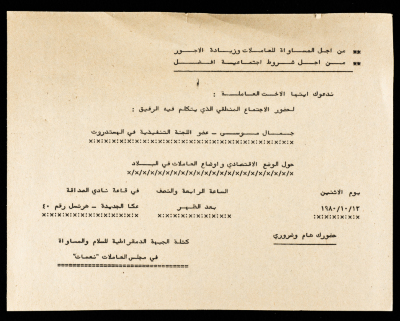 ** من اجل المساواة للعاملات وزيادة الاجور
** من اجل شروط اجتماعية افضل
ندعوك ايتها الاخت العاملة :
لحضور الاجتماع المنطقي الذي يتكلم فيه الرفيق :
جمال موسى - عضو اللجنة التنفيذية في الهستدروت
حول الوضع الاقتصادي واوضاع العاملات في البلاد
يوم الاثنين الساعة الرابعة والنصف في قاعة نادي الصداقة
١٩٨٠/١٠/١٣ بعد الظهر عكا الجديدة - هرتسل رقم ٤٠
حضورك هام وضروري
كتلة الجبهة الدمقراطية للسلام والمساواة
في مجلس العاملات "نعمات"